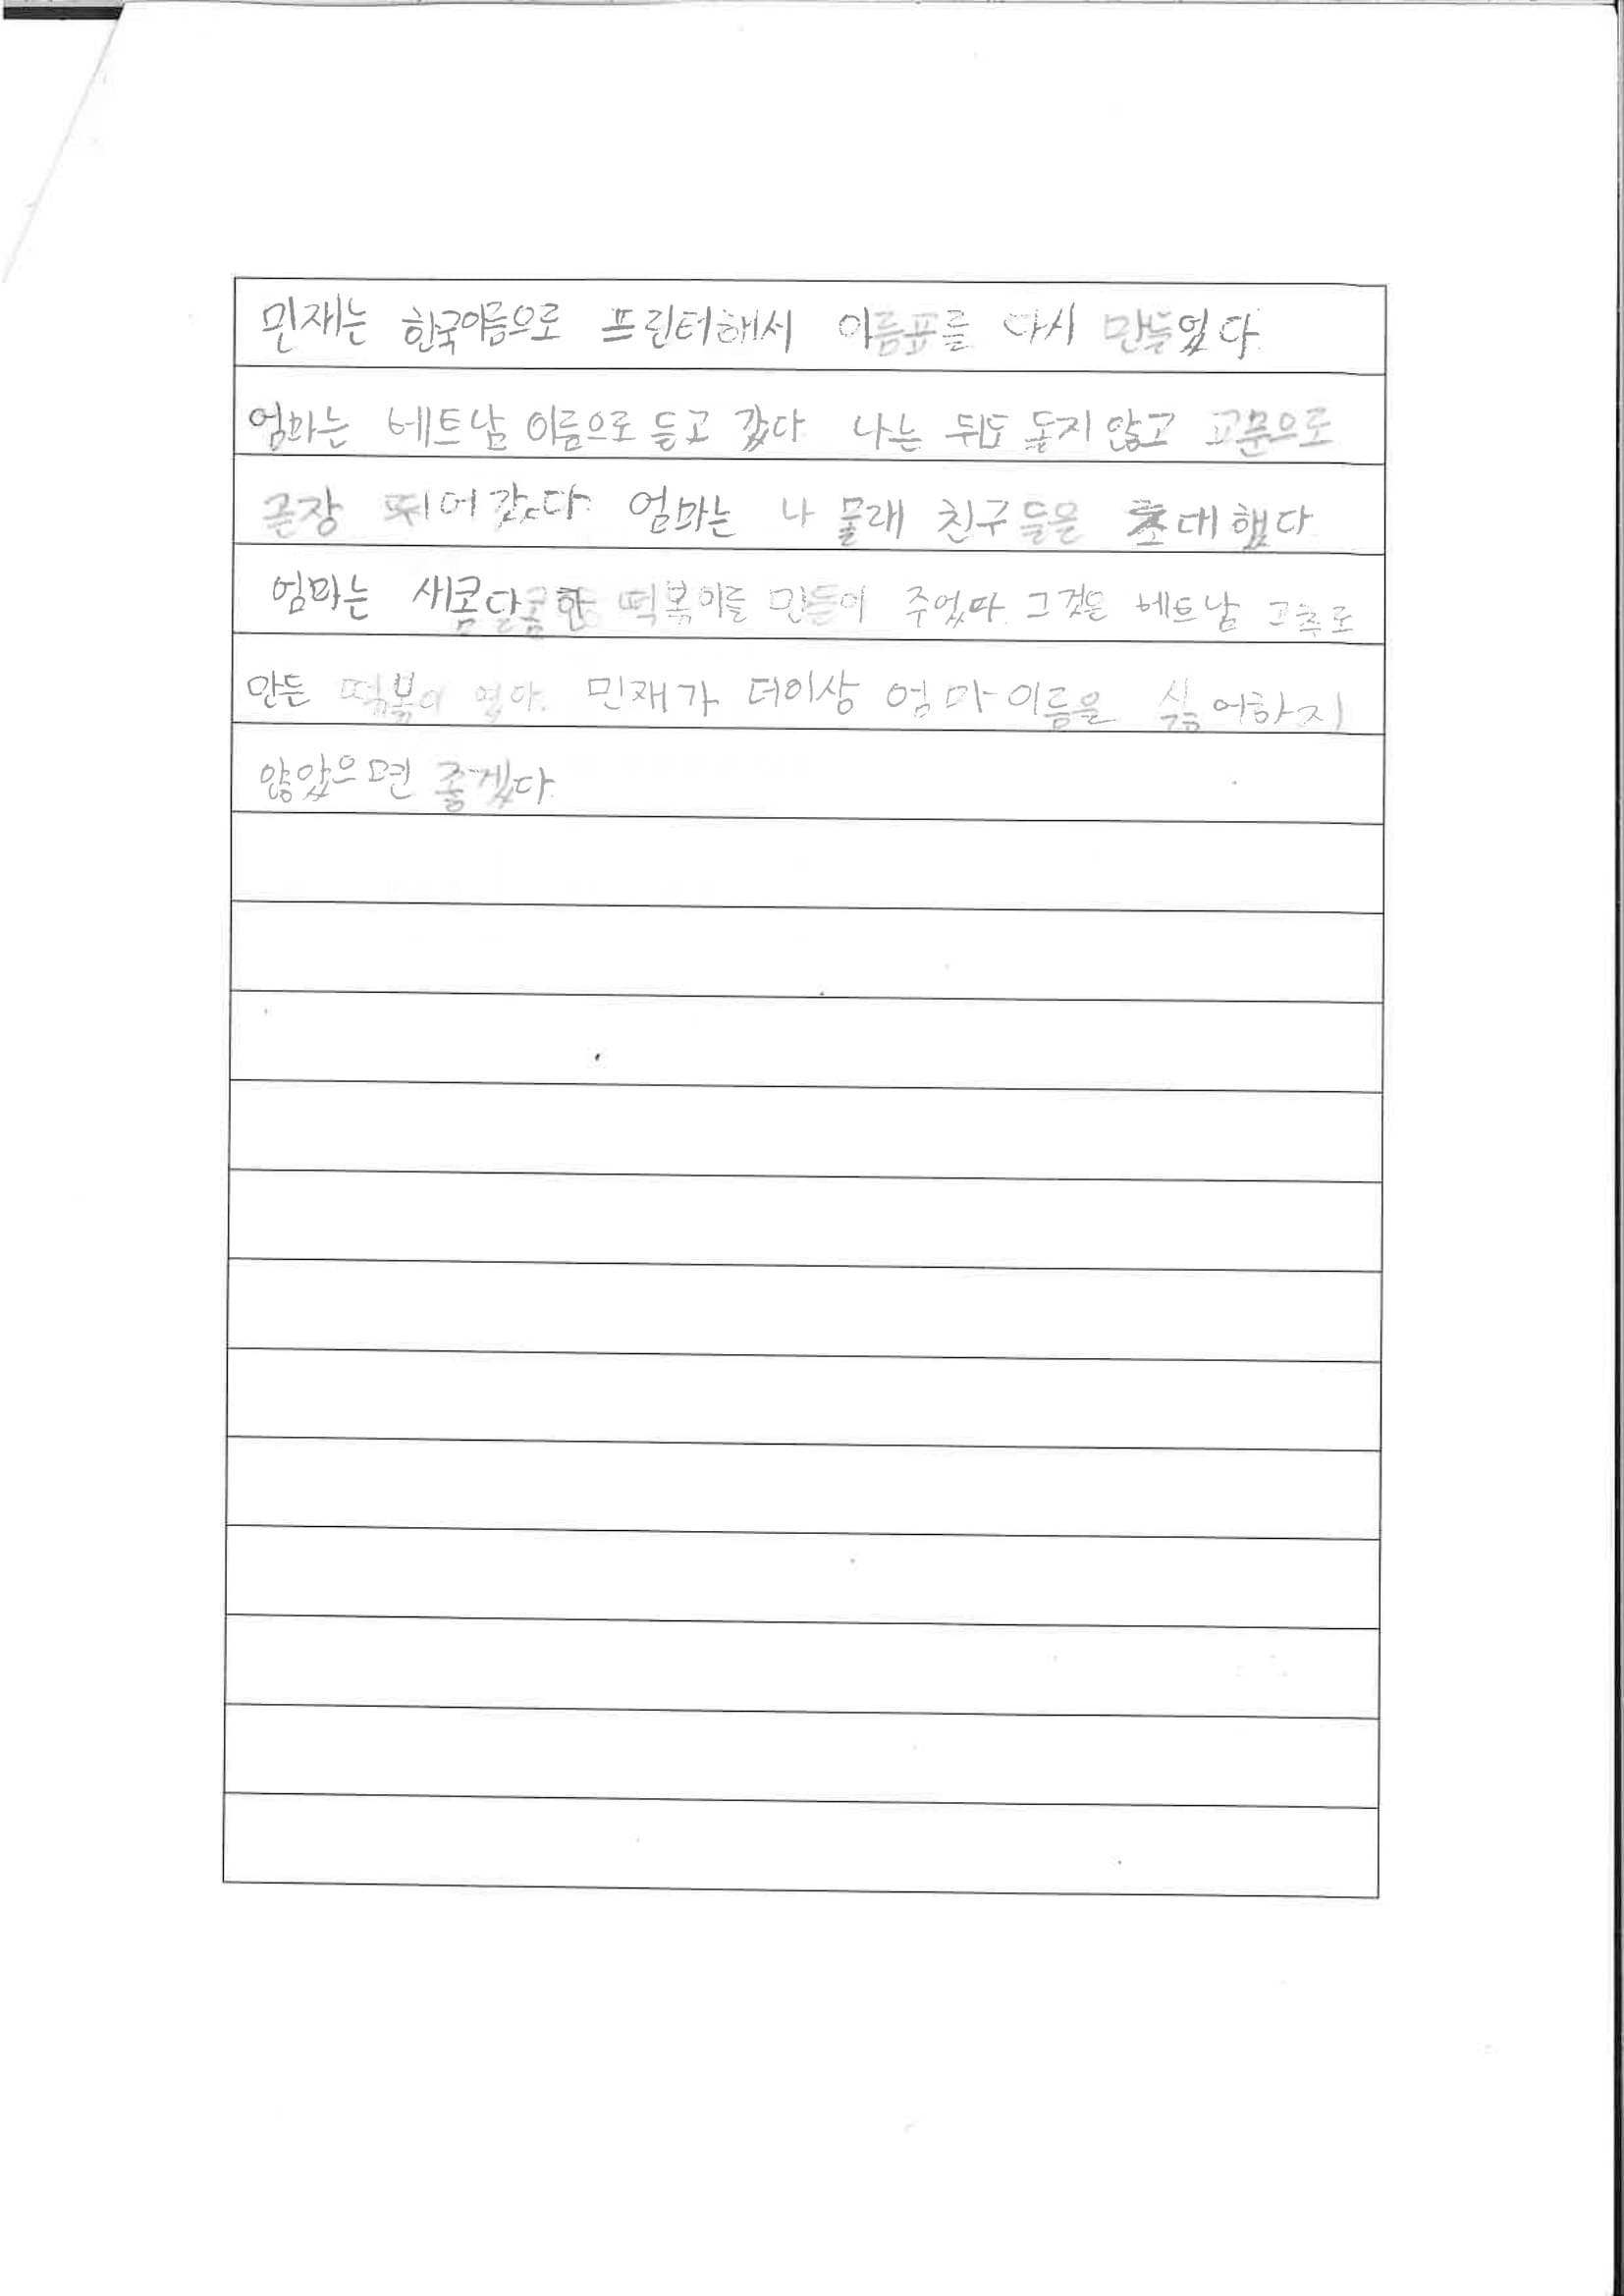 민재는 한국이름으로 프린터해서 이름표를 다시 만들었다
엄마는 베트남 이름으로 들고 갔다 나는 뒤도 돟지 않고 교문으로
곧장 뛰어갔다. 엄마는 나 몰래 친구들을 초대했다
엄마는 새콤달콤한 떡볶이를 만들어 주었다. 그것은 베트남 고추로
만든 떡볶이 였다. 민재가 더이상 엄마이름을 싫어하지
않았으면 좋겠다.